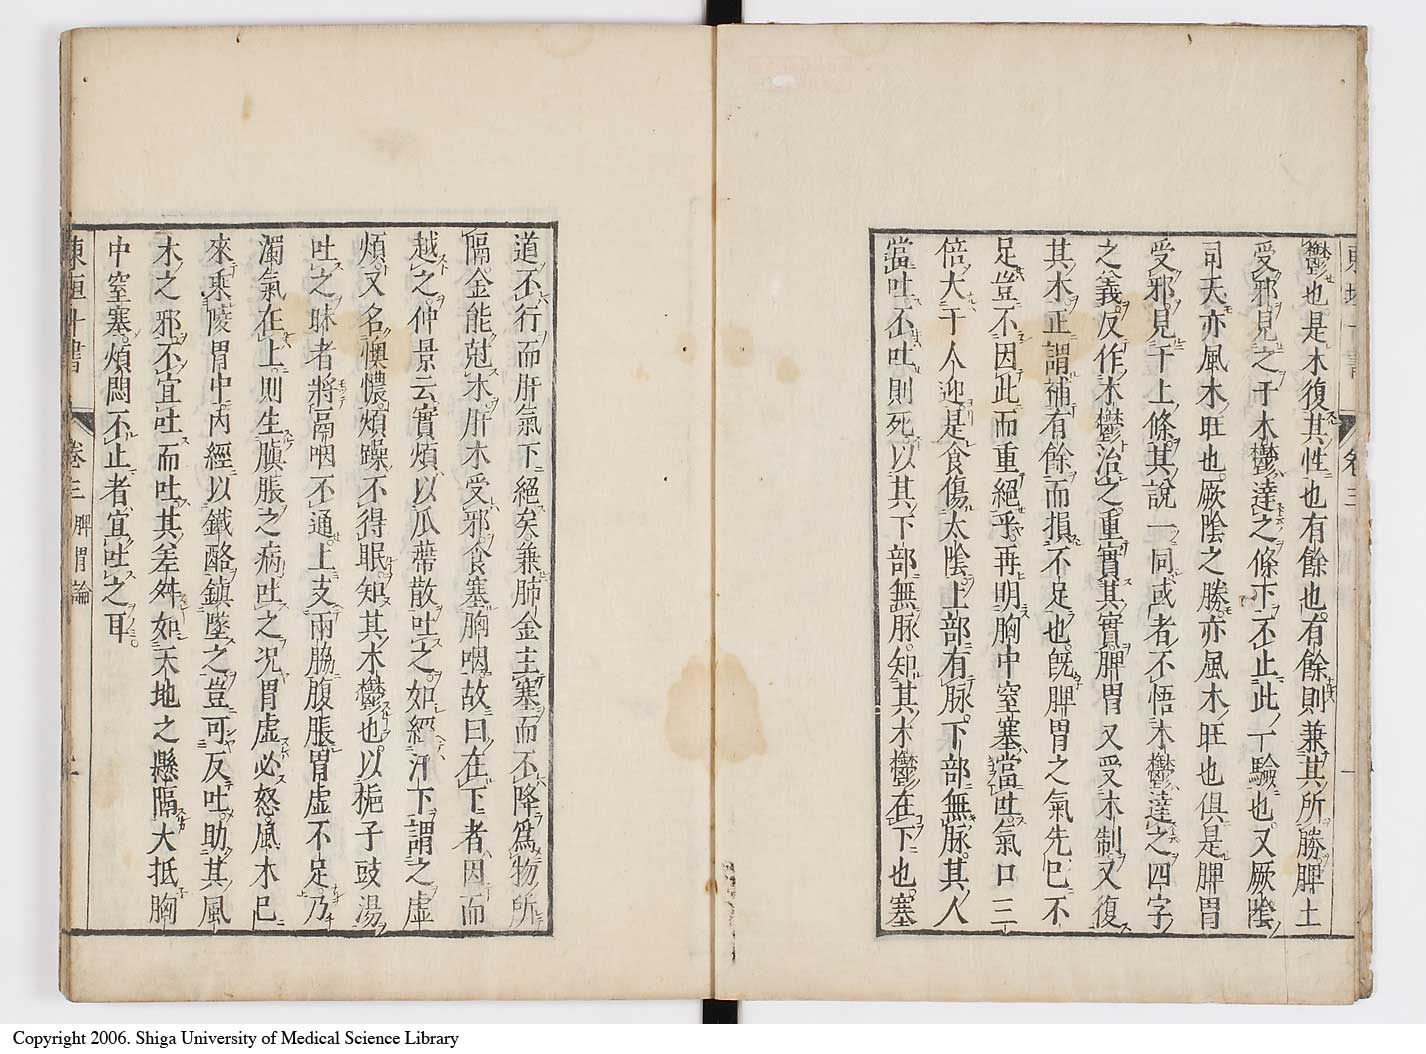 鬱也是木復其性也有餘也有餘則兼其所勝脾土
受邪見之于木鬱達之條下不止此一驗也又厥陰
司天亦風木旺也厥陰之勝亦風木旺也俱是脾胃
受邪見于上條其說一同或者不悟木鬱達之四字
之義反作木鬱治之重實其實脾胃又受木制又復
其木正謂補有餘而損不足也既脾胃之氣先已不
足豈不因此而重絕乎再明胸中窒塞當吐氣口三
倍大于人迎是食傷太陰上部有脉下部無脉其人
當吐不吐則死以其下部無脉知其木鬱在下也塞
道不行而肝氣下絕矣兼肺金主塞而不降爲物所
隔金能尅木肝木受邪食塞胸咽故曰在下者因而
越之仲景云實煩以瓜蔕散吐之如經汗下謂之虛
煩又名懊憹煩躁不得眠知其木鬱也以梔子豉湯
吐之昧者將鬲咽不通上支兩脇腹脹胃虛不足乃
濁氣在上則生䐜脹之病吐之况胃虛必怒風木已
來乘陵胃中內經以鐵酪鎮墜之豈可反吐助其風
木之邪不宜吐而吐其差舛如天地之懸隔大抵胸
中窒塞煩悶不止者宜吐之耳
東垣十書 卷三 脾胃論
Copyright 2006. Shiga University of Medical Science Library